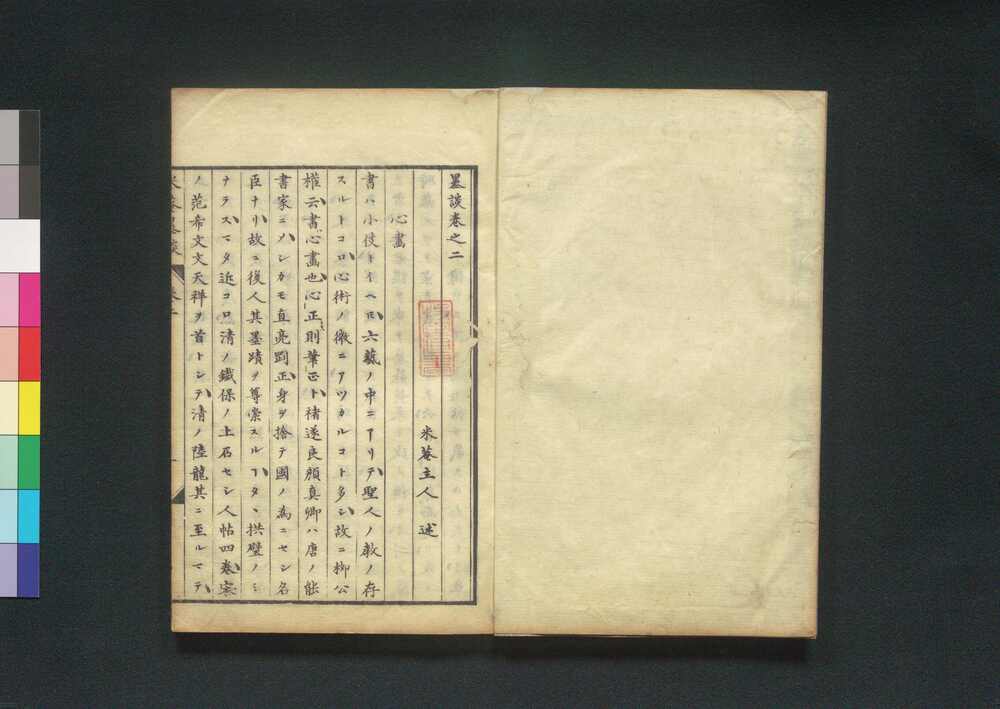 墨談卷之二
米菴主人 述
心畫
書ハ小伎トイヘ𪜈六藝ノ中ニアリテ聖人ノ教ノ存
スルトコロ心術ノ微ニアツカルコト多シ故ニ柳公
權云書心畫也心正則筆正ト褚遂良顔真卿ハ唐ノ能
書家ニノシカモ直亮剛正身ヲ捨テ國ノ為ニセシ名
臣ナリ故ニ後人其墨蹟ヲ尊崇スルヿタヽ拱璧ノミ
ナラスマタ近コロ清ノ鐵保ノ上石セシ人帖四卷宋
ノ范希文文天祥ヲ首トシテ清ノ陸隴其ニ至ルマテ
米菴墨談 卷二